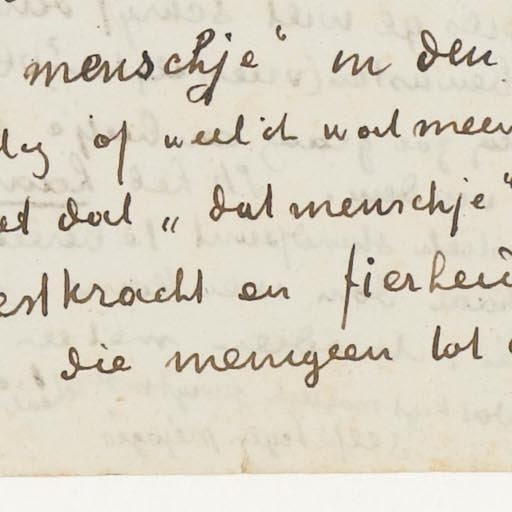 menschje" in den
of weet ik wat meer
dat „ dat menschje"
estkracht en fierheid
die menigeen tot